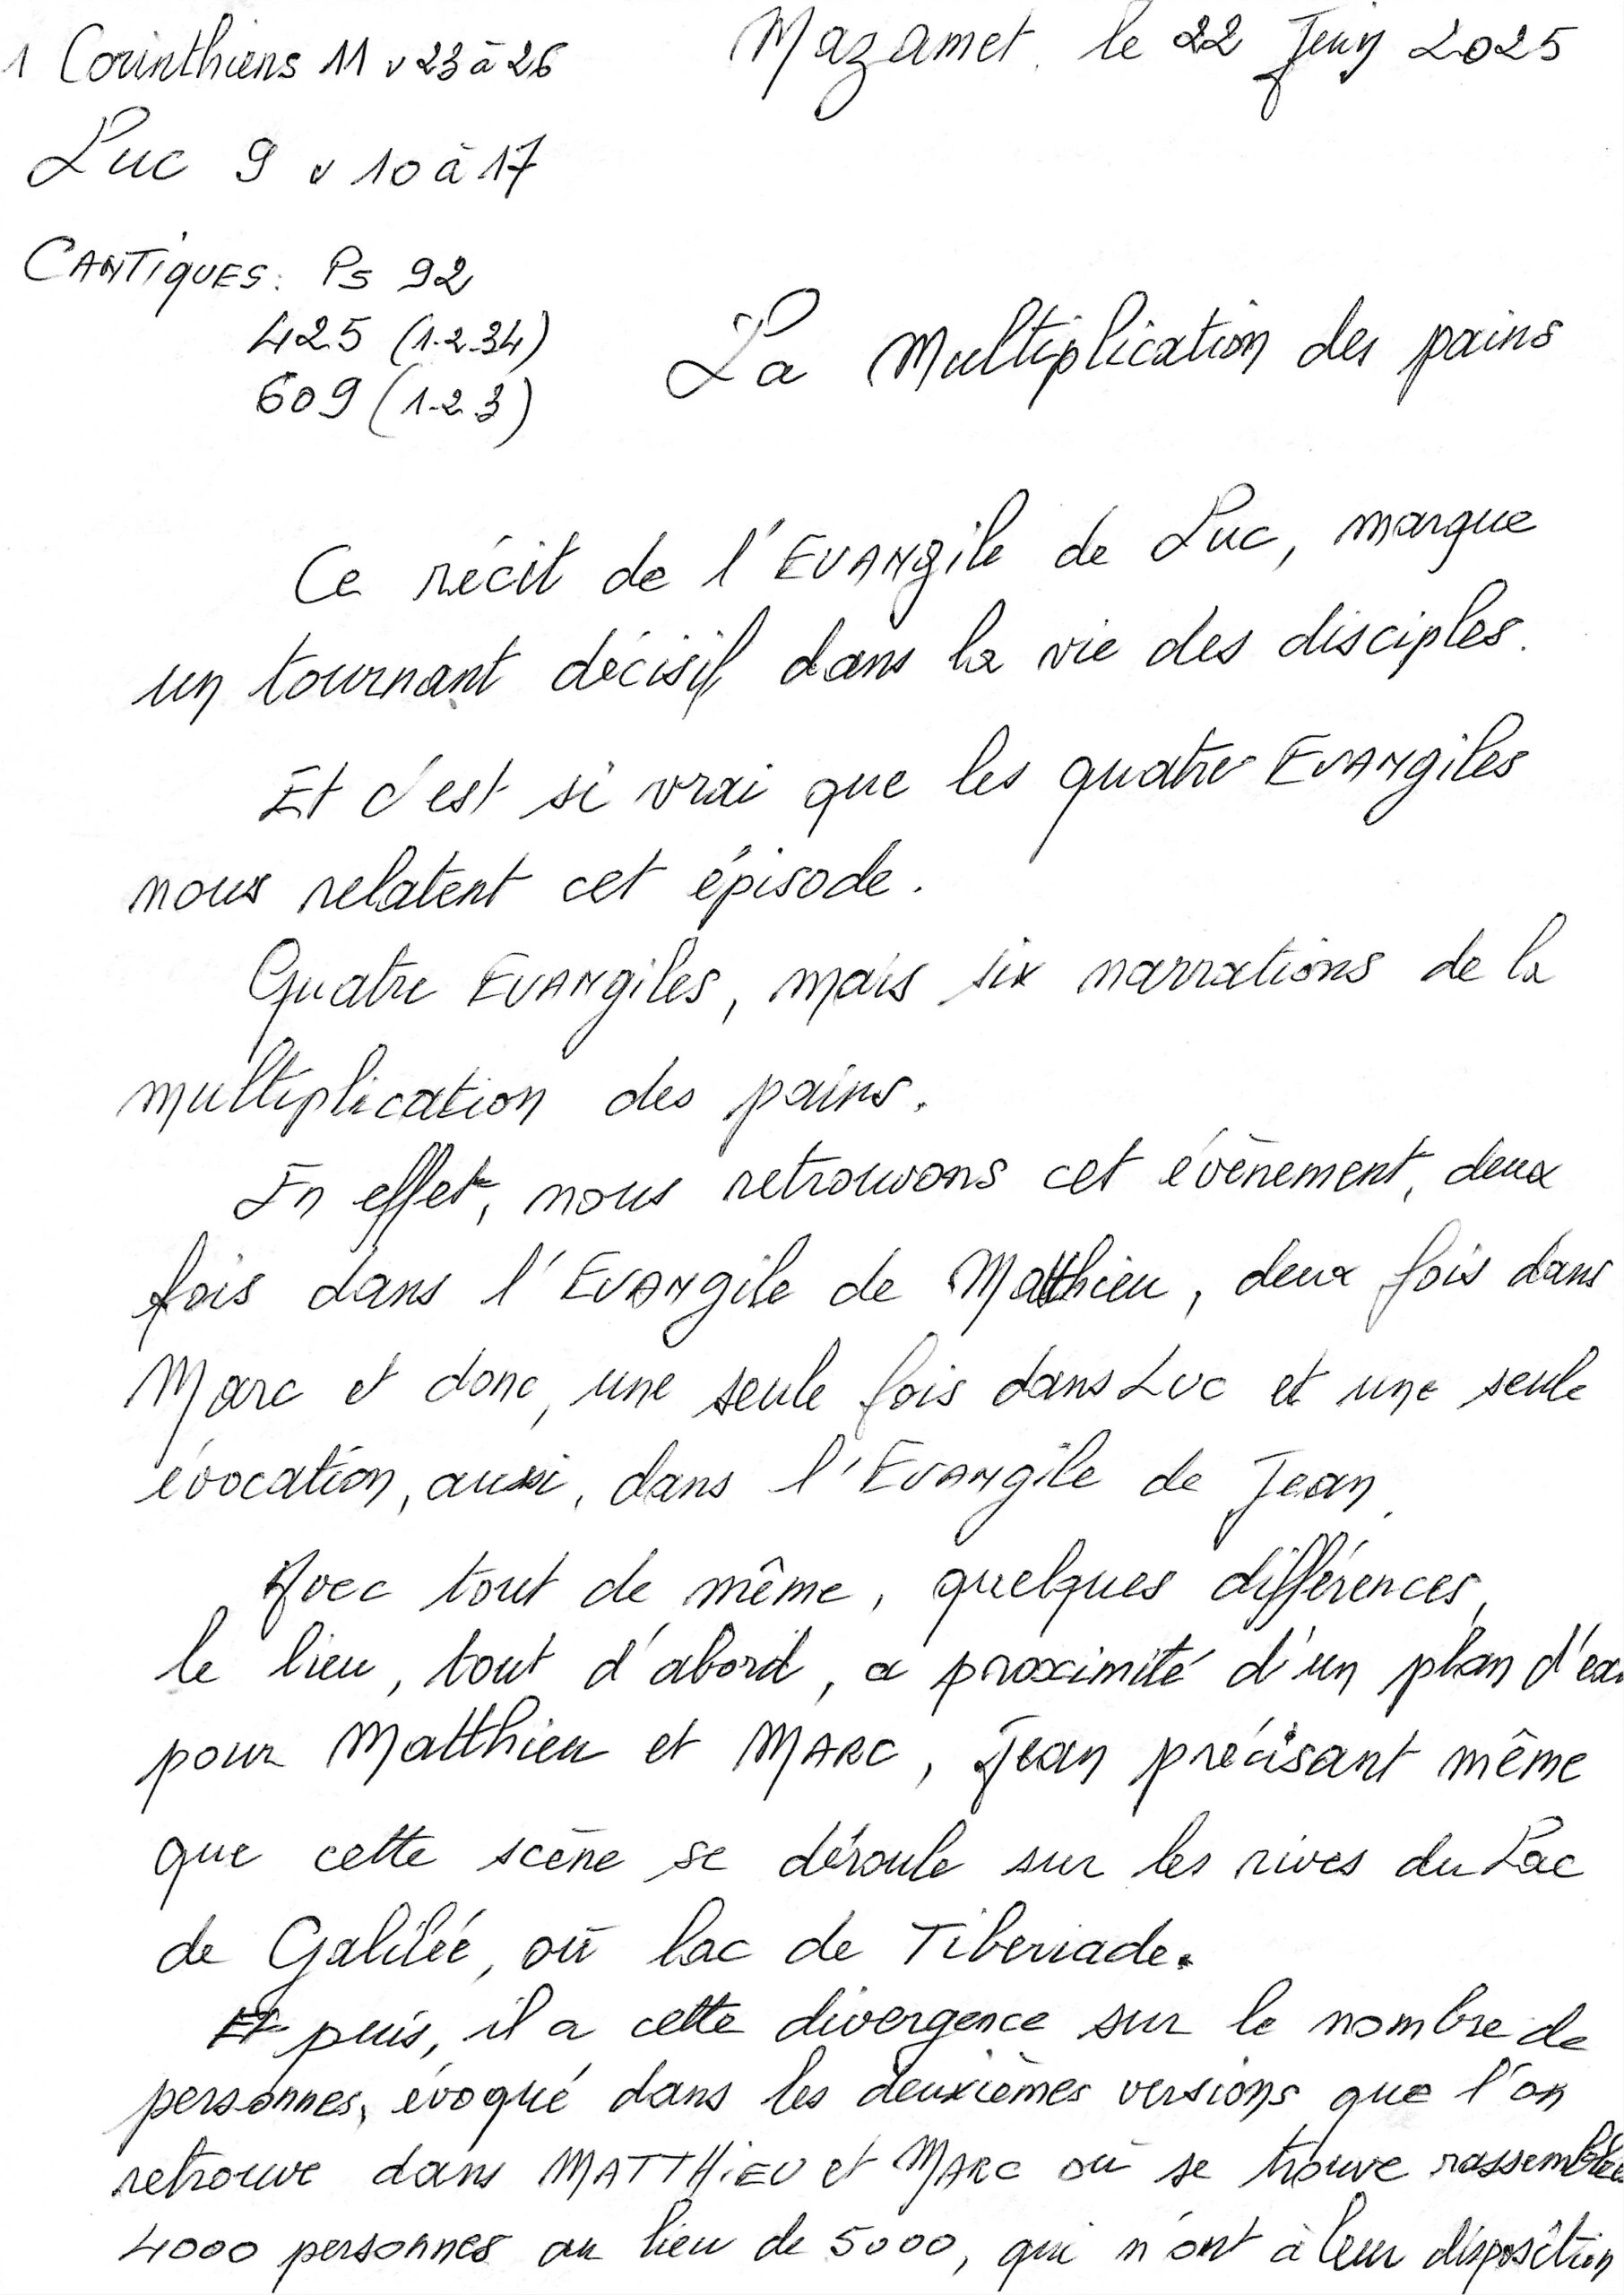 1 Corinthiens 11 v 23 à 26
Mazamet. le 22 Juin 2025
Luc 9 v 10 à 17
CANTIQUES: Ps 92
425 (1.2.34)
609 (1.2.3)
La Multiplication des pains
Ce récit de l'EVANgile de Luc, marque
un tournant décisif dans la vie des disciples.
Et c'est si vrai que les quatre EVANgiles
nous relatent cet épisode.
Quatre EVANgiles, mais six narrations de la
multiplication des pains.
En effet, nous retrouvons cet évènement, deux
fois dans l'EVANgile de Matthieu, deux fois dans
Marc et donc, une seule fois dans Luc et une seule
évocation, aussi, dans l'EVANgile de Jean.
Avec tout de même, quelques différences,
le lieu, tout d'abord, a proximité d'un plan d'eau
pour Matthieu et MARC, Jean précisant même
que cette scène se déroule sur les rives du Lac
de Galilée, où lac de Tiberiade.
Et puis, il a cette divergence sur le nombre de
personnes, évoqué dans les deuxièmes versions que l'on
retrouve dans MATTHIEU et MARC où se trouve
4000 personnes au lieu de 5000, qui n'ont à leur disposition